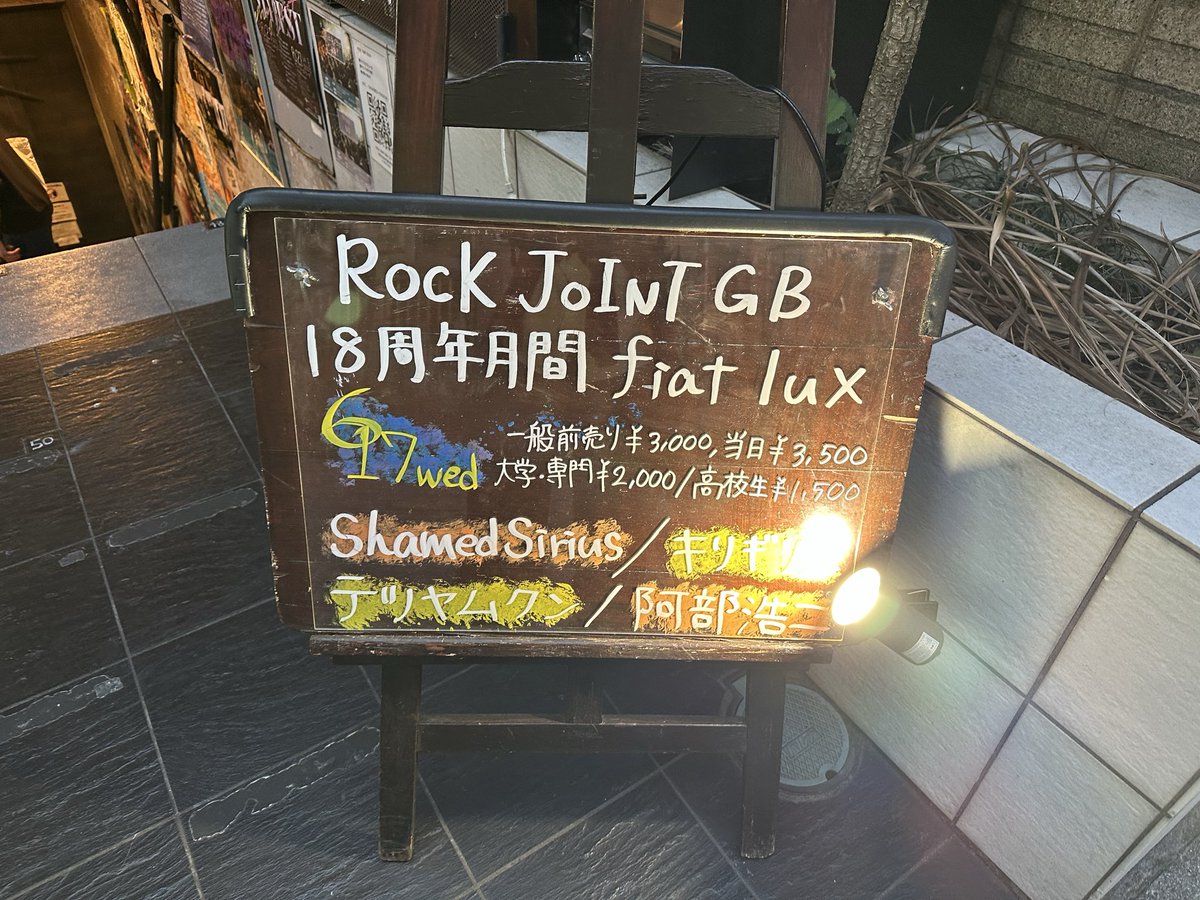 Rock JOINT GB
18周年月間 fiat lux
6 17 wed
一般前売り¥3,000, 当日¥3,500
大学・専門¥2,000/高校生¥1,500
Shamed Sirius/キリギリ
テツヤムクン/阿部浩二
50